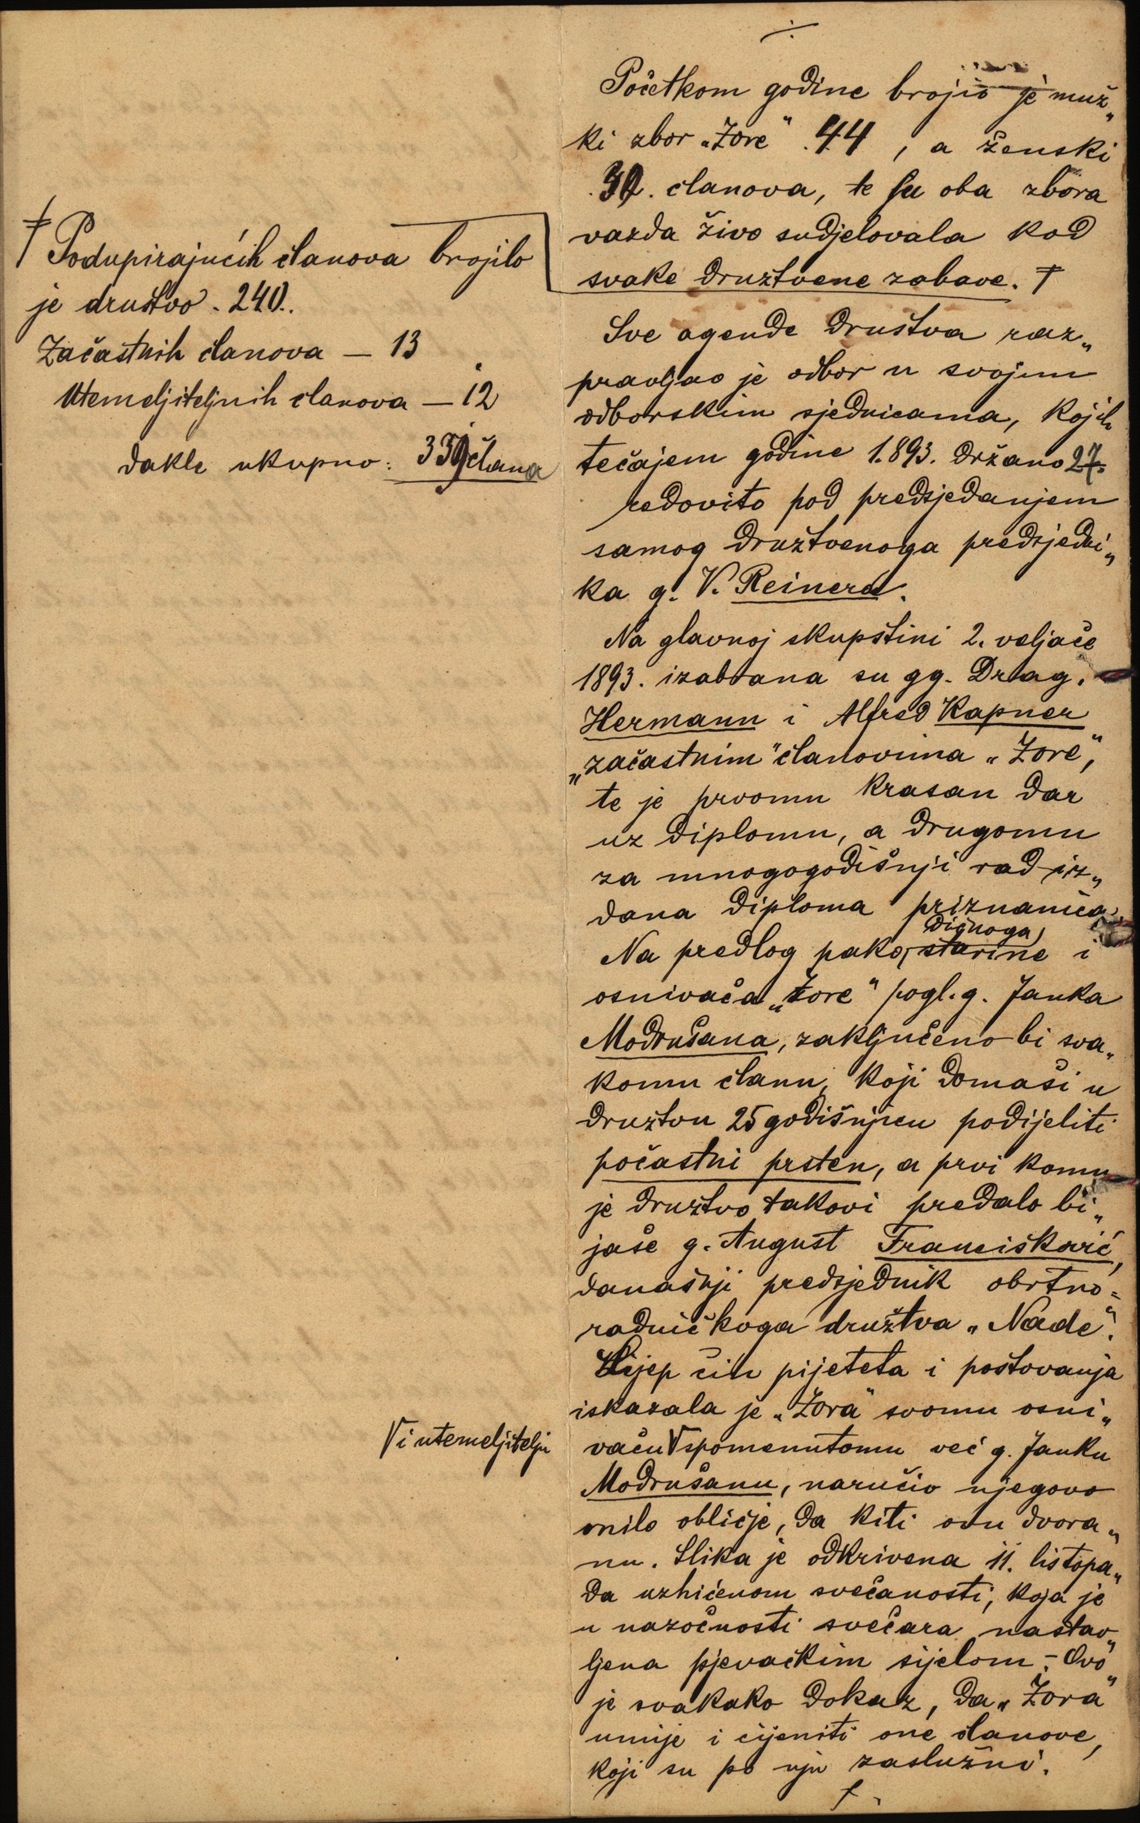 Početkom godine brojio je muž„
ki zbor „Zore“ 44, a ženski
30. članova, te su oba zbora
vazda živo sudjelovala kod
svake družtvene zabave. †
† Podupirajućih članova brojilo
je društvo 240.
Začastnih članova — 13
Utemeljiteljnih članova — 12
dakle ukupno: 339 člana
Sve agende društva raz„
pravljao je odbor u svojim
odborskim sjednicama, kojih
tečajem godine 1893. držano 27.
redovito pod predsjedanjem
samog družtvenoga predsjedni„
ka g. V. Reinera.
Na glavnoj skupštini 2. veljače
1893. izabrana su gg. Drag.
Hermann i Alfred Kapner
„začastnim“ članovima „Zore“,
te je prvomu krasan dar
uz diplomu, a drugomu
za mnogogodišnji rad iz„
dana diploma priznanica.
Na predlog pako, dičnoga starine i
osnivača „Zore“ pogl. g. Janka
Modrušana, zaključeno bi sva„
komu članu, koji domaši u
družtvu 25 godišnjicu podijeliti
počastni prsten, a prvi komu
je družtvo takovi predalo bi„
jaše g. August Francišković,
današnji predsjednik obrtno=
radničkoga družtva „Nade“.
Lijep čin pijeteta i poštovanja
iskazala je „Zora“ svomu osni„
vaču V spomenutomu već g. Janku
V i utemeljitelju
Modrušanu, naručiv njegovo
milo obličje, da kiti ovu dvora„
nu. Slika je odkrivena 11. listopa„
da uzhićenom svečanosti, koja je
u nazočnosti svečara nastav„
ljena pjevačkim sijelom. – Ovo
je svakako dokaz, da „Zora“
umije i cijeniti one članove,
koji su po nju zaslužni.